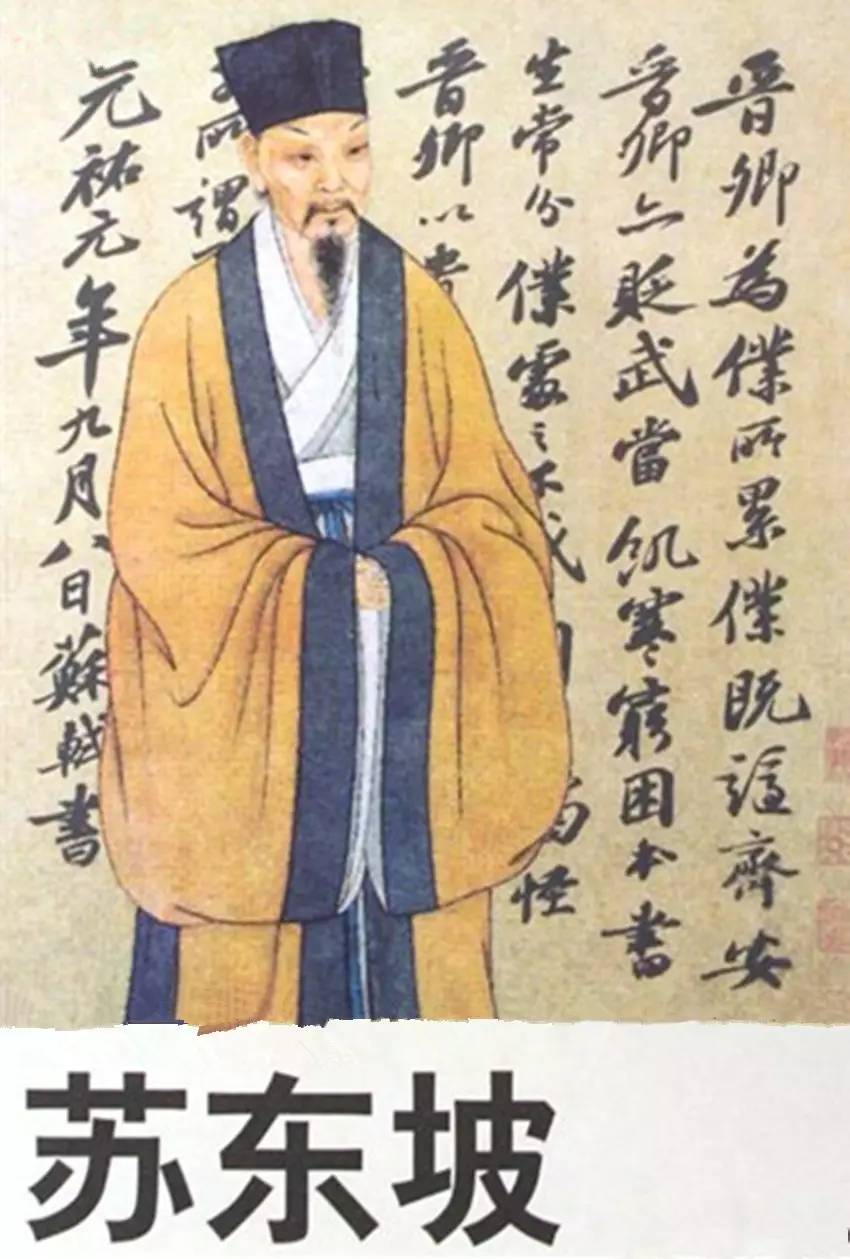 晉卿為僕所累僕既謫齊安
晉卿亦貶武當飢寒窮困本書
生常分僕處之不戚怪
晉卿以貴
所謂
元祐元年九月八日蘇軾書
苏东坡